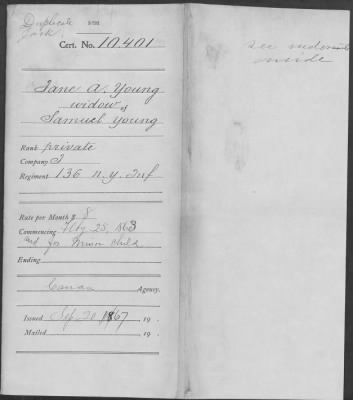 Duplicate
Jack
Cert. No. 10.401
see indorsement
inside
Jane A. Young
widow of
Samuel Young
Rank private
Company I
Regiment 136 N.Y. Inf
Rate per Month $ 8
Commencing May 25, 1863
and for minor child
Ending
Agency.
Issued Sep 20 1867, 19 .
Mailed , 19 .